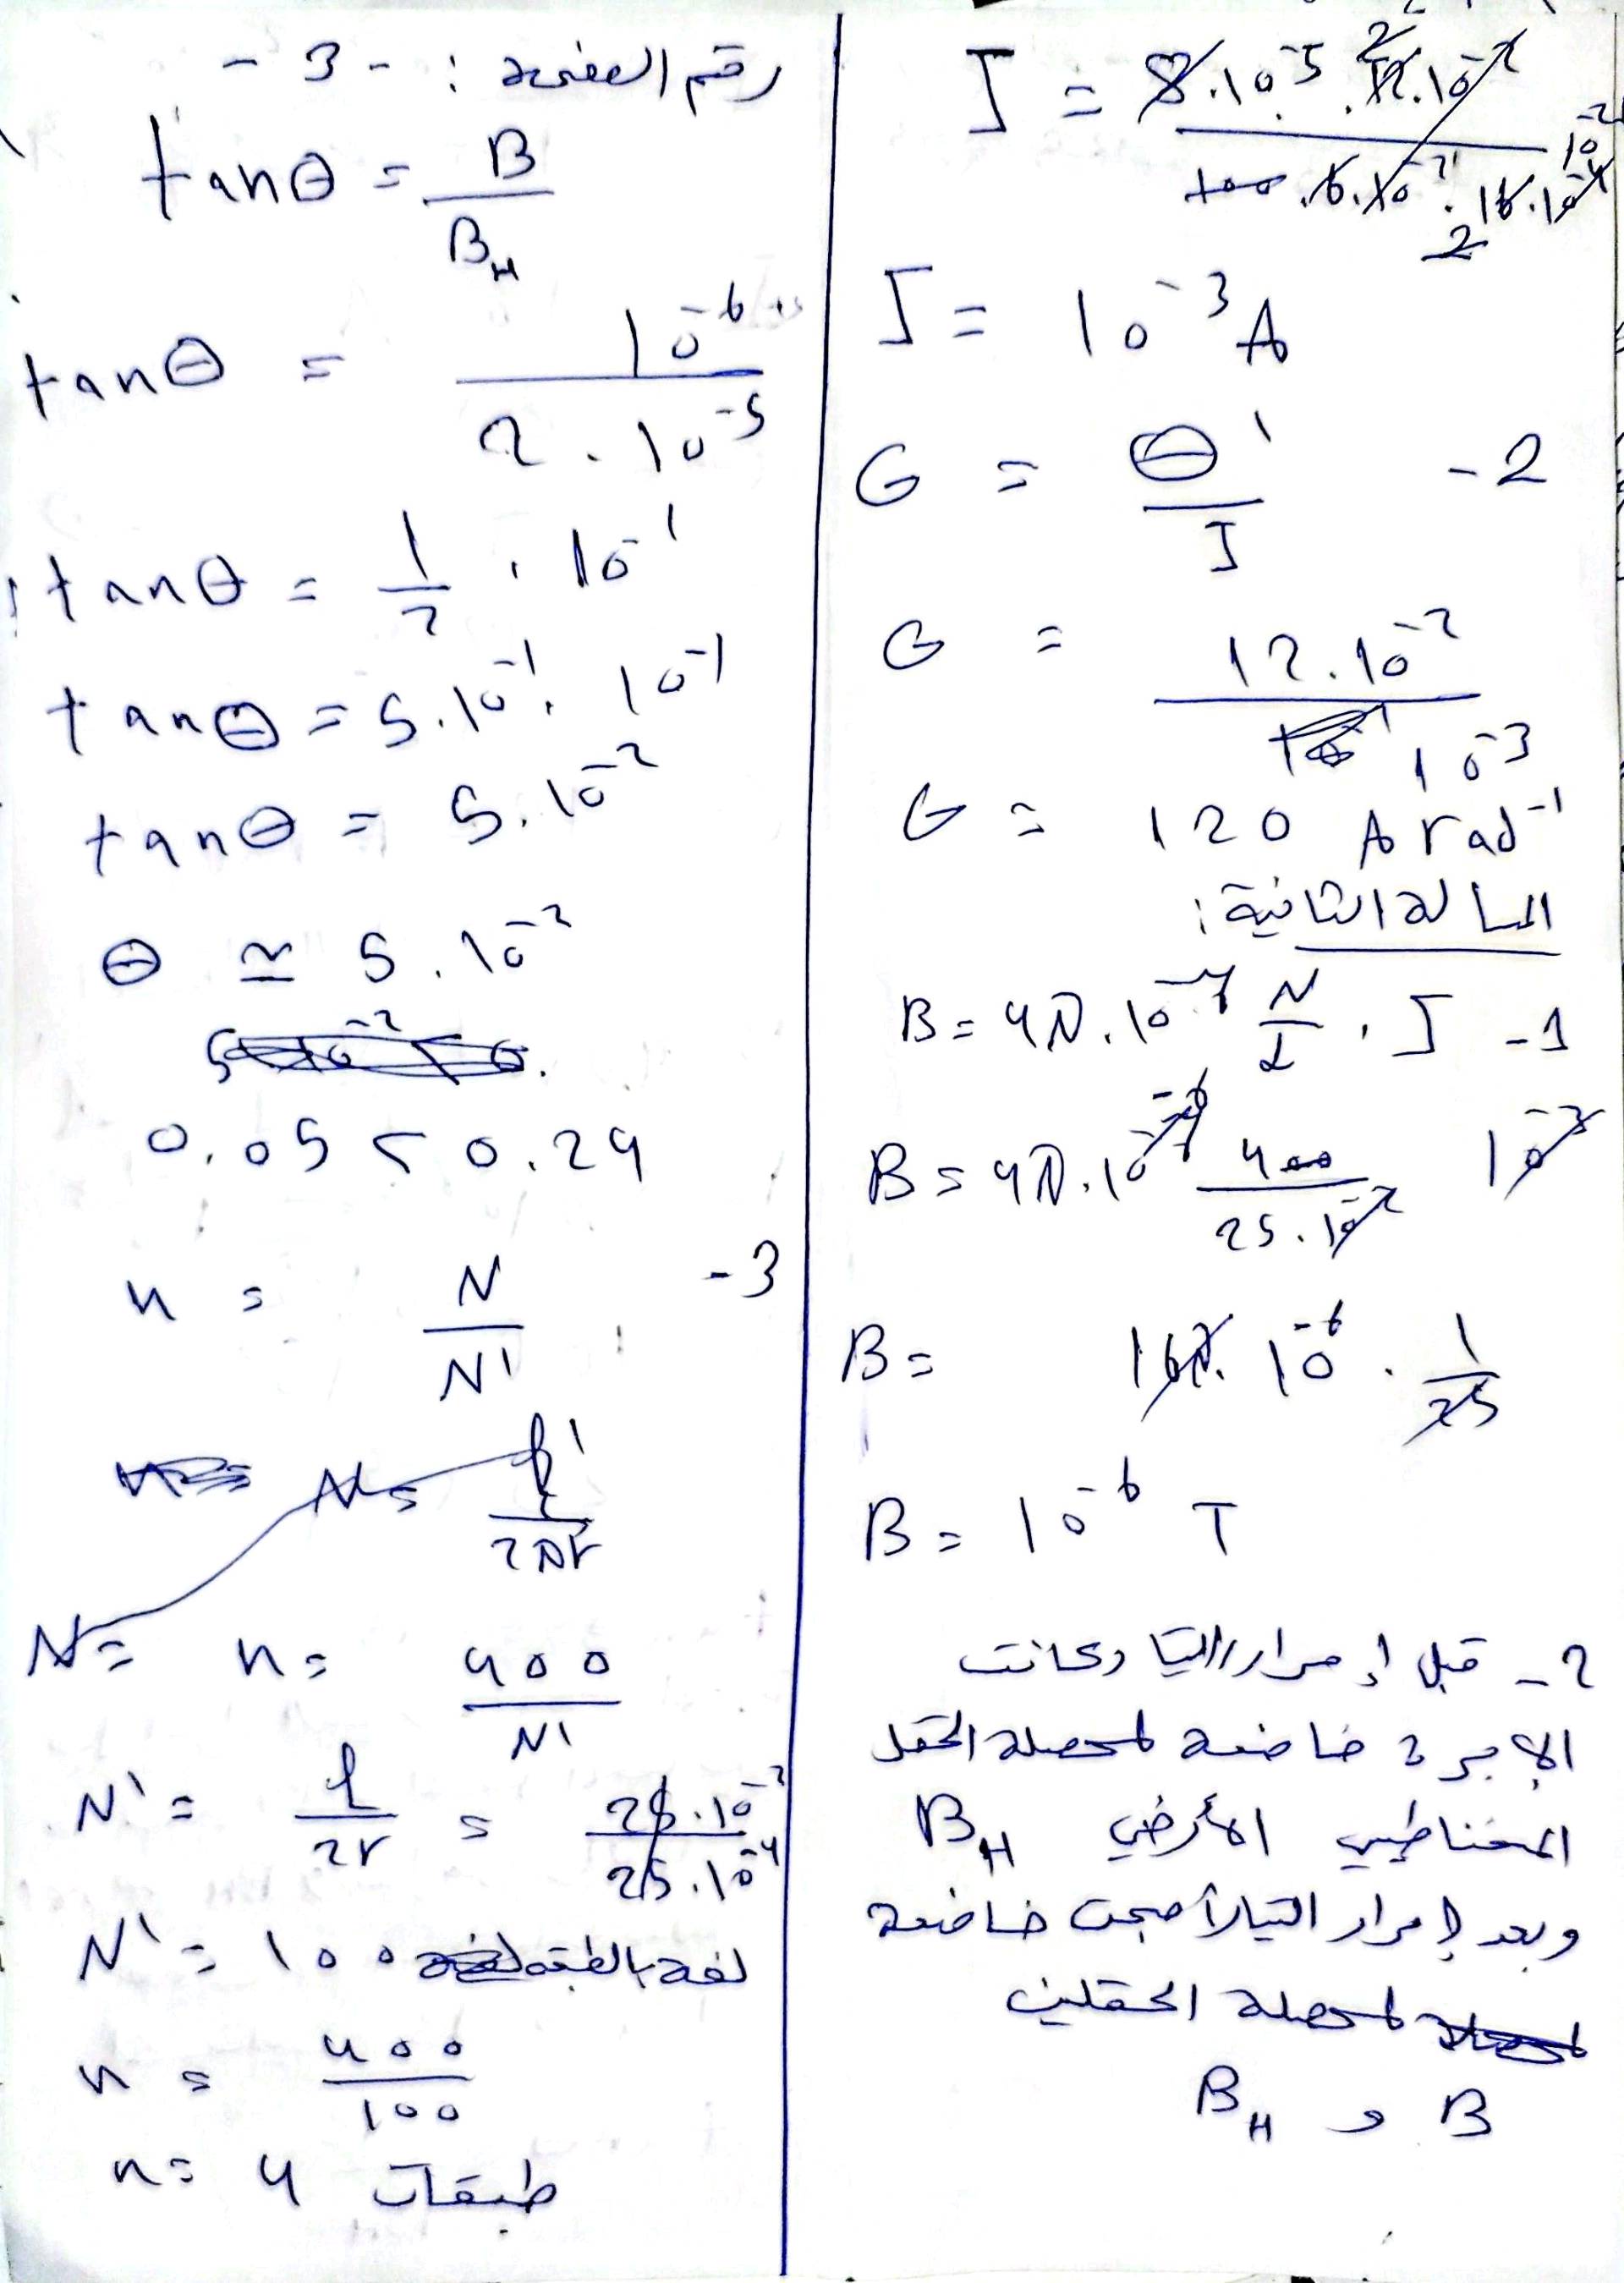 رقم الصفحة : - 3 -
I = 8.10^-5 . 12.10^-2 / 100 . 6.10^-2 . 16.10^-4
2
10^-2
2
I = 10^-3 A
G = θ' / I - 2
G = 12.10^-2 / 10^-3
G = 120 A rad^-1
المسألة الثانية :
B = 4π.10^-7 N/L . I - 1
B = 4π.10^-7 400 / 25.10^-2 10^-2
B = 16π. 10^-6 . 1/25
B = 10^-6 T
2 - قبل إمرار التيار كانت
الإبرة خاضعة لمحصلة الحقل
المغناطيسي الأرضي B_H
وبعد إمرار التيار أصبحت خاضعة
لمحصلة الحقلين
B و B_H
tanθ = B / B_H
tanθ = 10^-6 / 2 . 10^-5
tanθ = 1/2 . 10^-1
tanθ = 5.10^-1 . 10^-1
tanθ = 5.10^-2
θ ≃ 5 . 10^-2
0.05 < 0.24
n = N / N' - 3
N = l' / 2πr
N = n = 400 / N'
N' = l / 2r = 25.10^-2 / 25.10^-4
N' = 100 لفة بالطبقة
n = 400 / 100
n = 4 طبقات